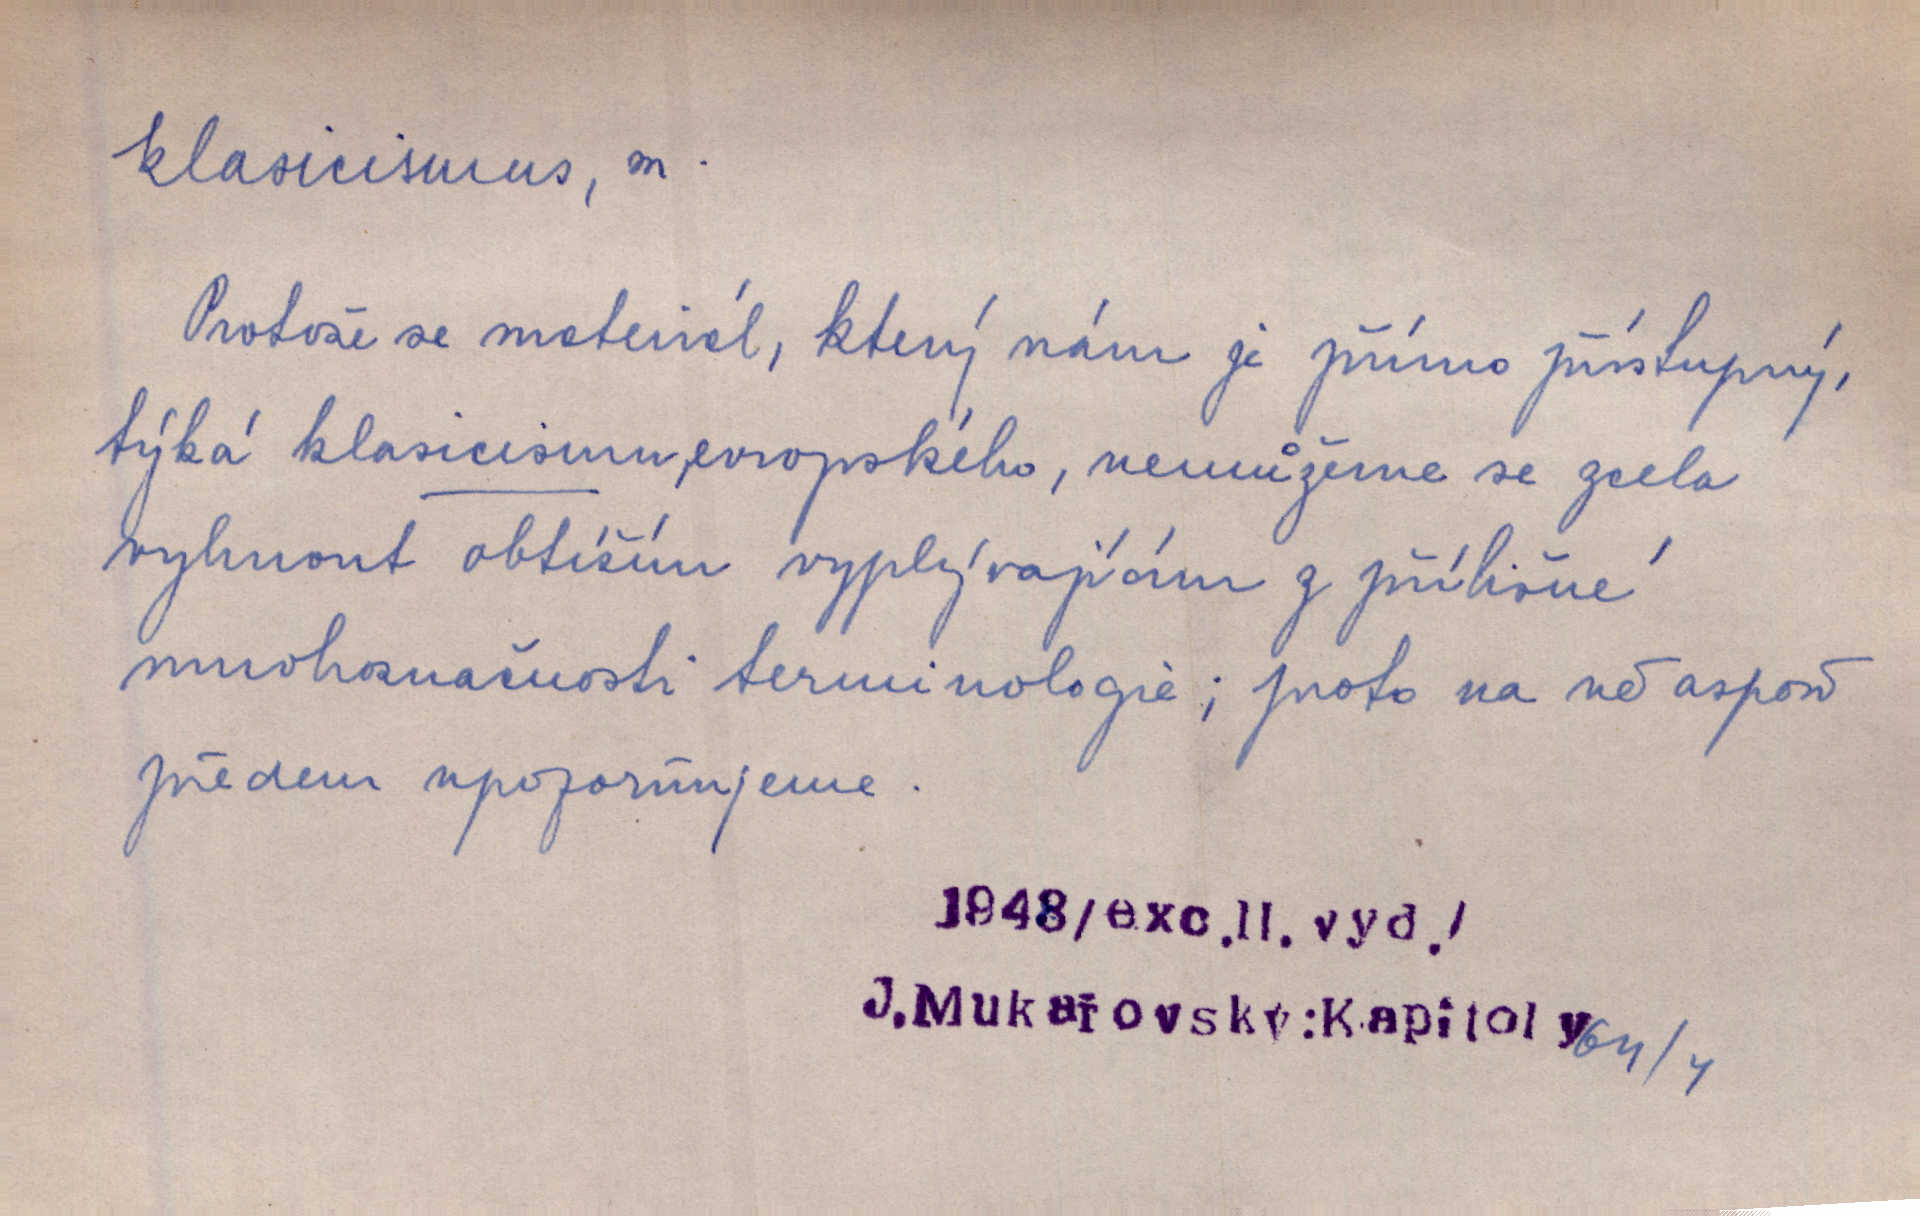 klasicismus, m.
Protože se materiál, který nám je přímo přístupný,
týká klasicismu, evropského, nemůžeme se zcela
vyhnout obtížím vyplývajícím z přílišné
mnohoznačnosti terminologie; proto na ně aspoň
předem upozorňujeme.
1948/exc.II.vyd./
J.Mukařovský:Kapitoly 64/4